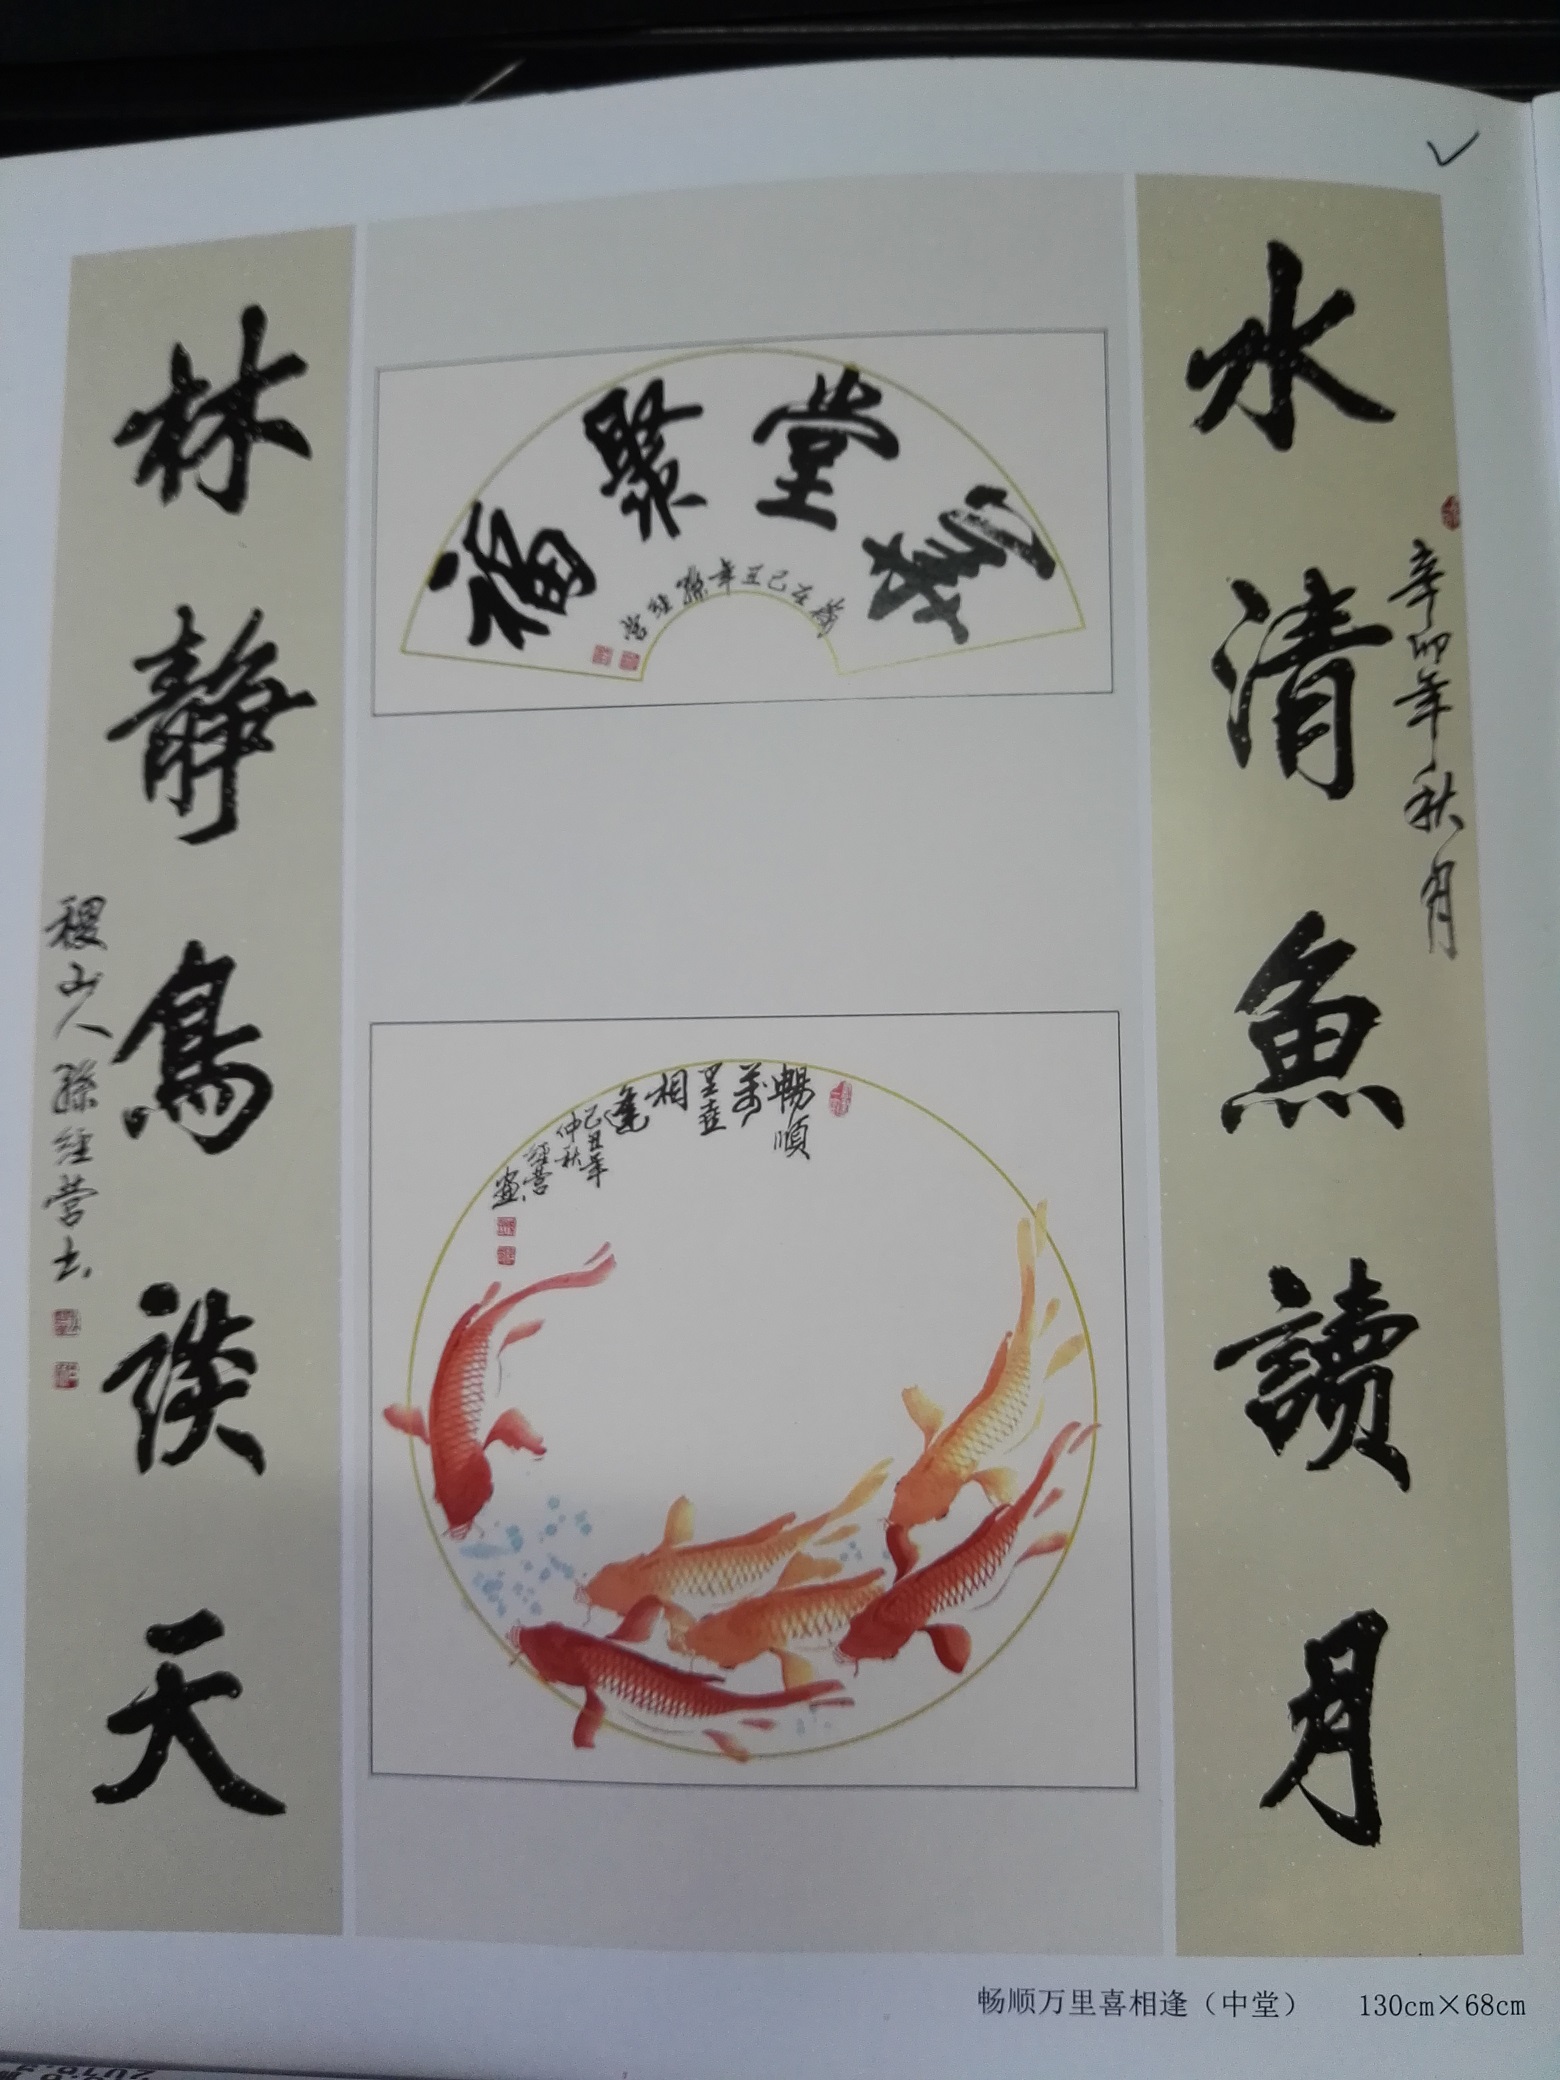 水清魚讀月
辛卯年秋月
義堂聚福
己丑年孫经营
暢順
萬
里喜
相
逢
己丑年
仲秋
经营
畫
林静鳥談天
稷山人孫经营书
畅顺万里喜相逢（中堂） 130cm×68cm